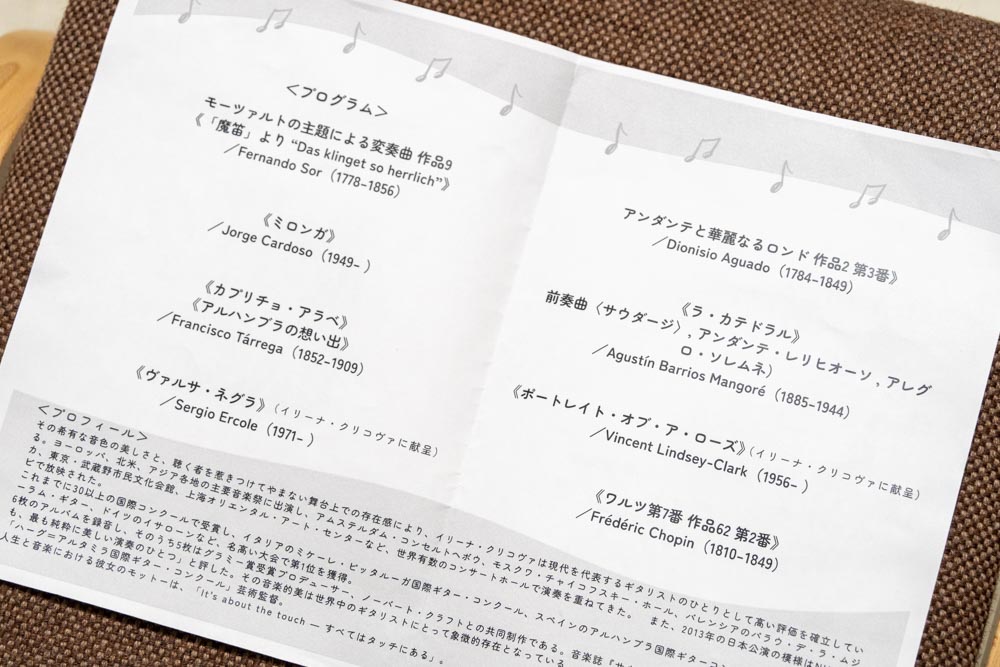 ＜プログラム＞
モーツァルトの主題による変奏曲 作品9
《「魔笛」より “Das klinget so herrlich”》
／Fernando Sor（1778–1856）
《ミロンガ》
／Jorge Cardoso（1949– ）
《カプリチョ・アラベ》
《アルハンブラの想い出》
／Francisco Tárrega（1852–1909）
《ヴァルサ・ネグラ》（イリーナ・クリコヴァに献呈）
／Sergio Ercole（1971– ）
アンダンテと華麗なるロンド 作品2 第3番》
／Dionisio Aguado（1784–1849）
《ラ・カテドラル》
前奏曲〈サウダージ〉, アンダンテ・レリヒオーソ , アレグ
ロ・ソレムネ）
／Agustín Barrios Mangoré（1885–1944）
《ポートレイト・オブ・ア・ローズ》（イリーナ・クリコヴァに献呈）
／Vincent Lindsey-Clark（1956– ）
《ワルツ第7番 作品62 第2番》
／Frédéric Chopin（1810–1849）
＜プロフィール＞
その希有な音色の美しさと、聴く者を惹きつけてやまない舞台上での存在感により、イリーナ・クリコヴァは現代を代表するギタリストのひとりとして高い評価を確立してい
る。ヨーロッパ、北米、アジア各地の主要音楽祭に出演し、アムステルダム・コンセルトヘボウ、モスクワ・チャイコフスキー・ホール、バレンシアのパラウ・デ・ラ・ムジ
カ、東京・武蔵野市民文化会館、上海オリエンタル・アート・センターなど、世界有数のコンサートホールで演奏を重ねてきた。 また、2013年の日本公演の模様はNH
どで放映された。
これまでに30以上の国際コンクールで受賞し、イタリアのミケーレ・ピッタルーガ国際ギター・コンクール、スペインのアルハンブラ国際ギターコン
ラム・ギター、ドイツのイザローンなど、名高い大会で第1位を獲得。
6枚のアルバムを録音し、そのうち5枚はグラミー賞受賞プロデューサー、ノーバート・クラフトとの共同制作である。音楽誌『
も、最も純粋に美しい演奏のひとつ」と評した。その音楽的美は世界中のギタリストにとって象徴的存在となっている
「ハーグ＝アルタミラ国際ギター・コンクール」芸術監督。
人生と音楽における彼女のモットーは、「It's about the touch — すべてはタッチにある」。